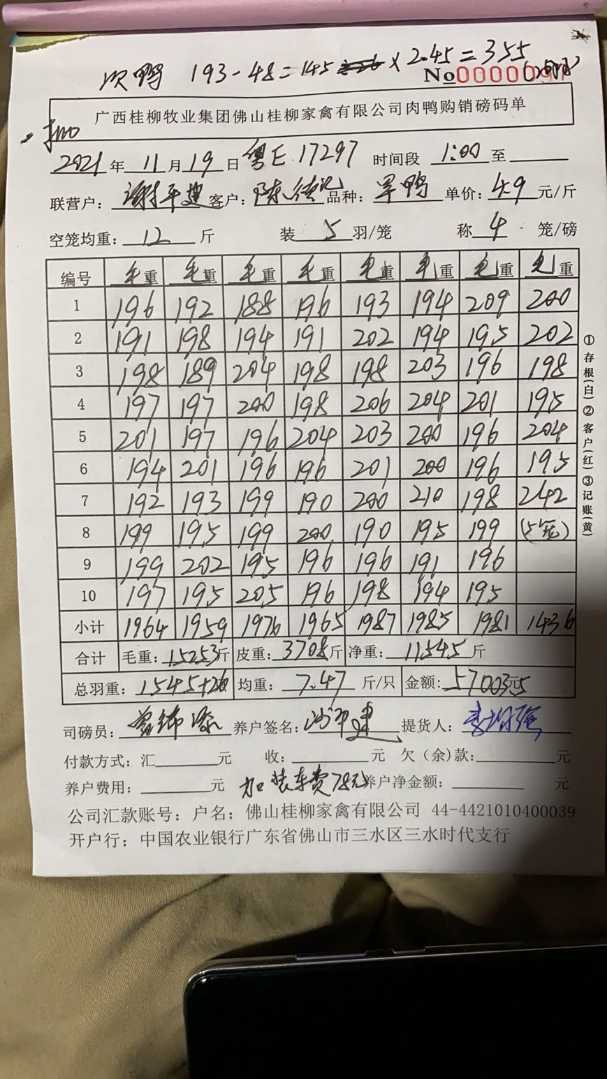 次鸭 193-48=145 ×2.45=355
No000000
广西桂柳牧业集团佛山桂柳家禽有限公司肉鸭购销磅码单
2021年11月19日 粤E.17297 时间段 1:00 至
联营户: 谢平建 客户: 陈 品种: 鸭 单价: 4.9 元/斤
空笼均重: 12 斤 装 5 羽/笼 称 4 笼/磅
编号 毛重 毛重 毛重 毛重 毛重 毛重 毛重 毛重
1 196 192 188 196 193 194 209 200
2 191 198 194 191 202 194 195 202
3 198 189 204 198 198 203 196 198
4 197 197 200 198 206 204 201 195
5 201 197 196 204 203 200 196 204
6 194 201 196 196 201 200 196 195
7 192 193 199 190 200 210 198 242
8 199 195 199 200 190 195 199 (5笼)
9 199 202 195 196 196 191 196
10 197 195 205 196 198 194 195
小计 1964 1959 1976 1965 1987 1985 1981 1436
合计 毛重: 15253斤 皮重: 3708斤 净重: 11545 斤
总羽重: 1545 均重: 7.47 斤/只 金额: 57003元
司磅员: 养户签名: 提货人:
付款方式: 汇 元 收: 元 欠(余)款: 元
养户费用: 元 加装车费78元 养户净金额: 元
公司汇款账号: 户名: 佛山桂柳家禽有限公司 44-4421010400039
开户行: 中国农业银行广东省佛山市三水区三水时代支行
①存根(白)②客户(红)③记账(黄)